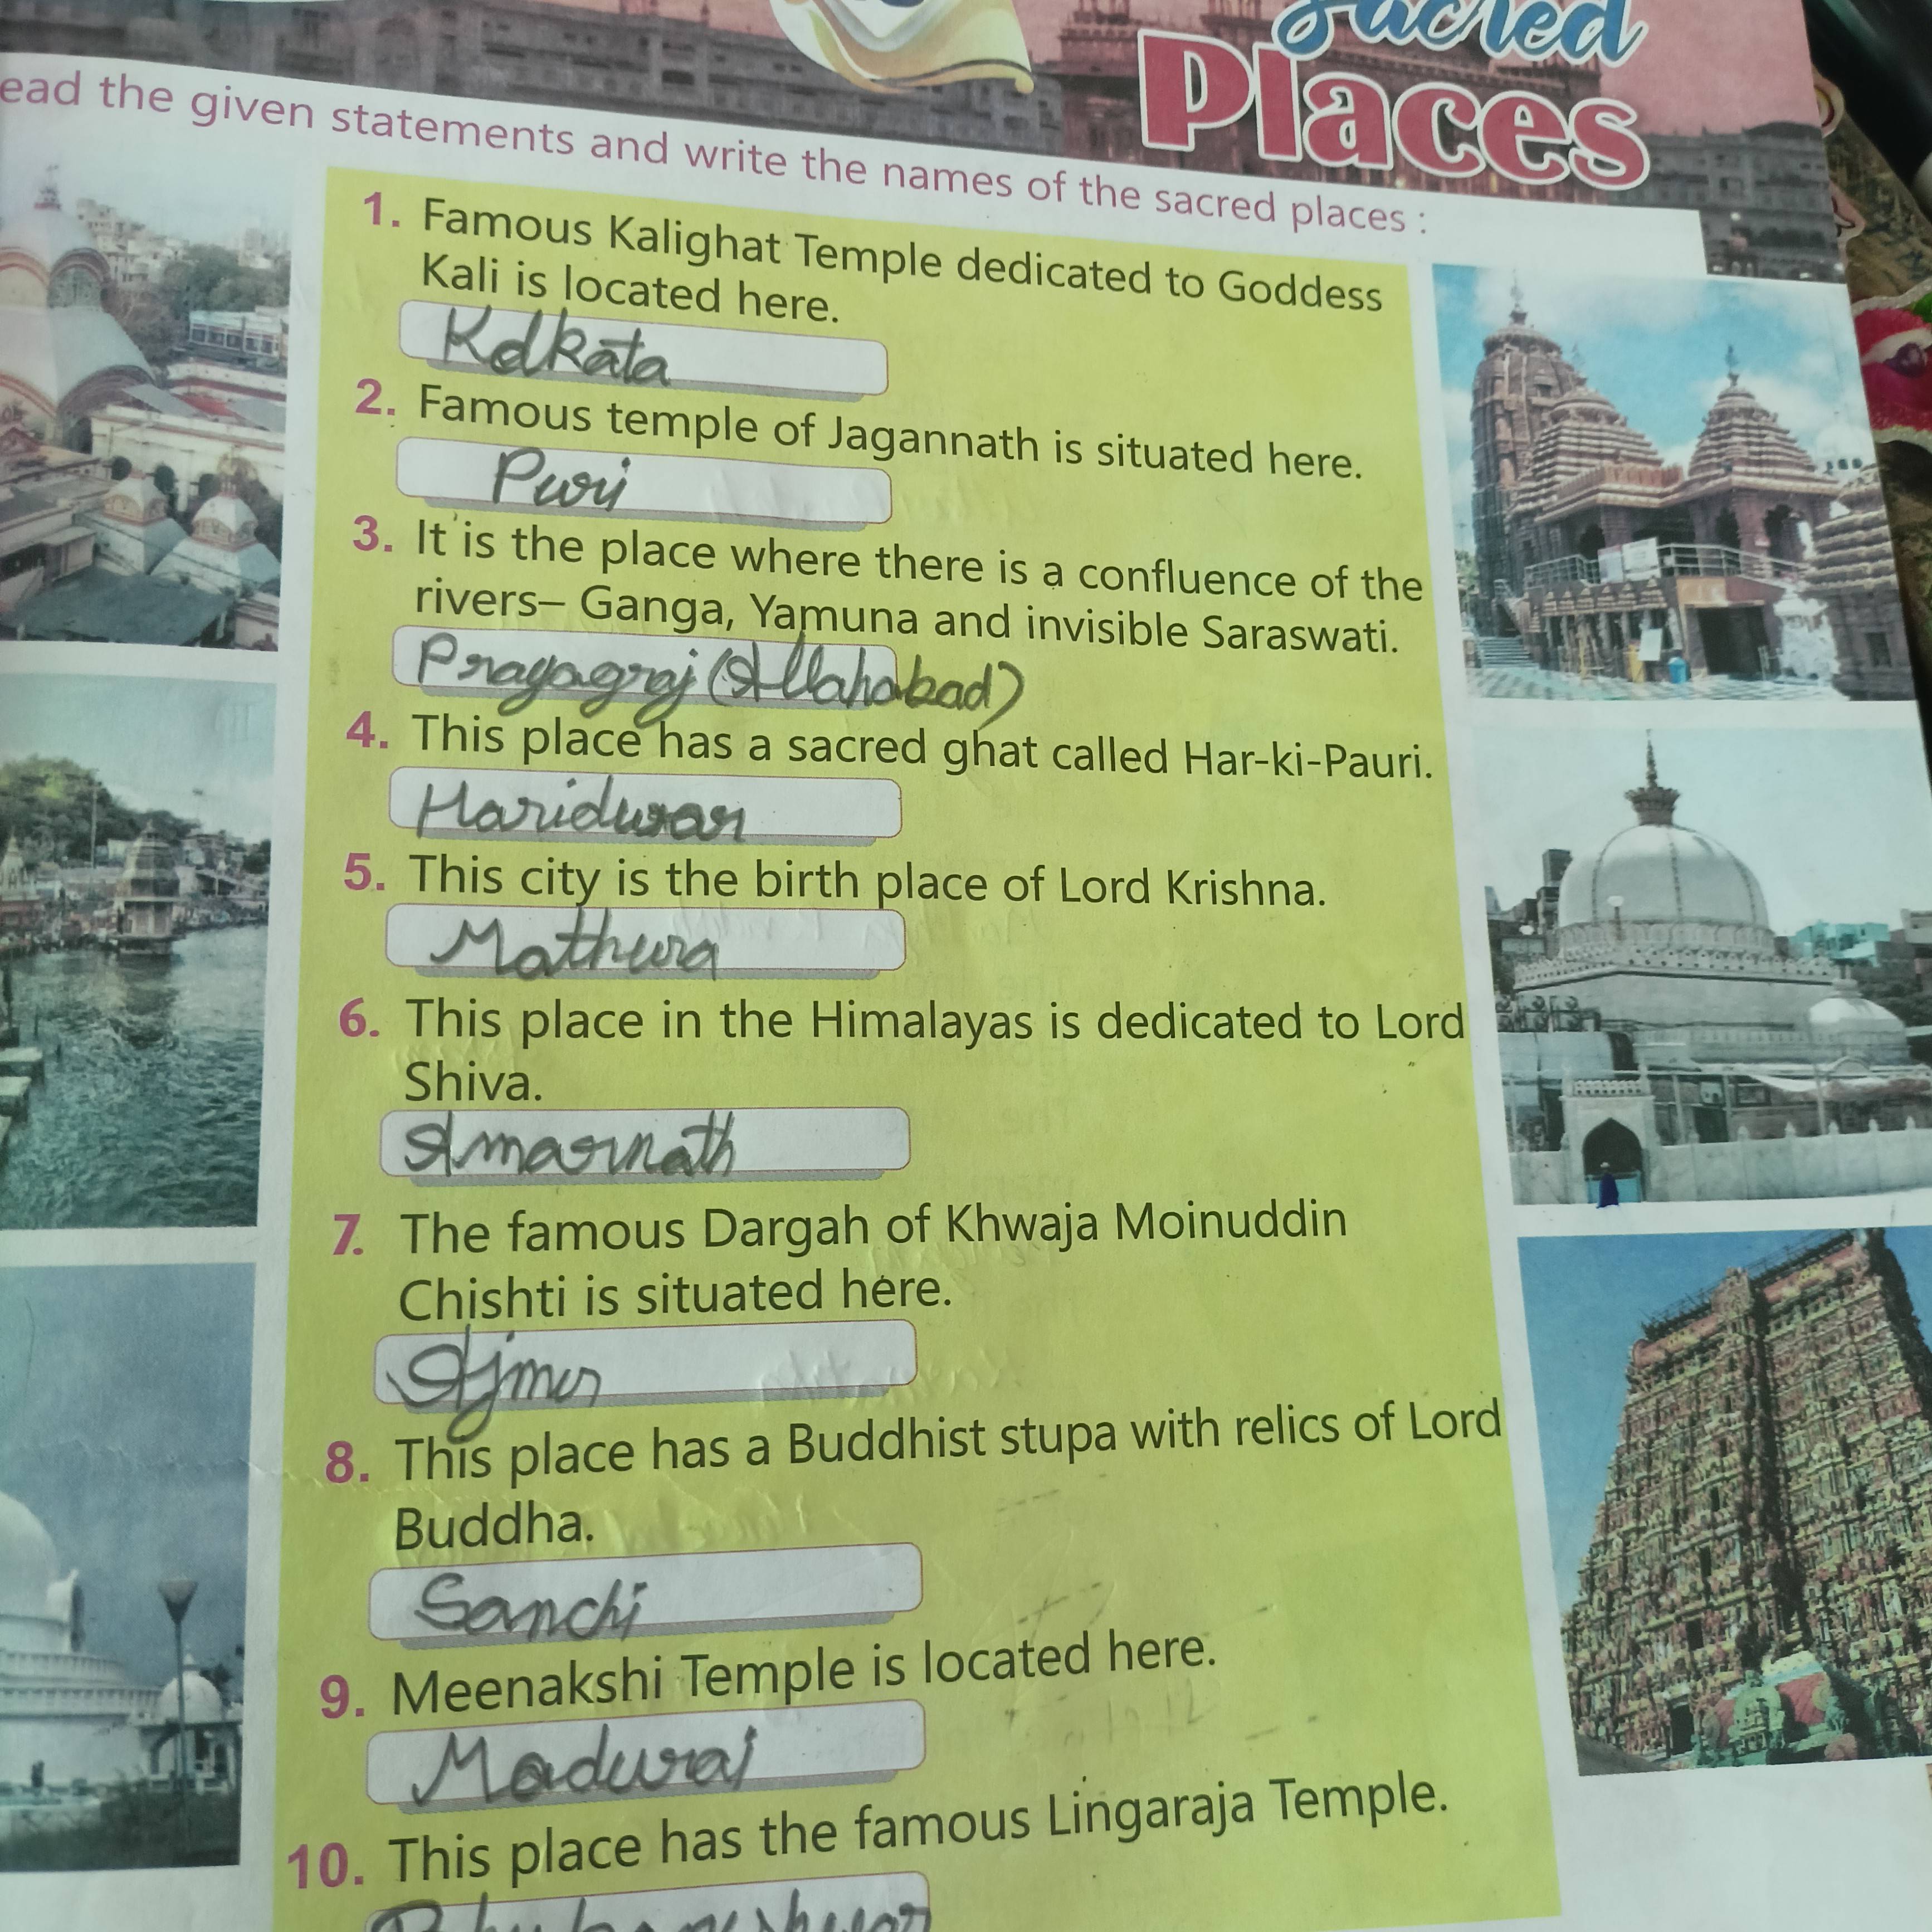 Sacred
Places
ead the given statements and write the names of the sacred places :
1. Famous Kalighat Temple dedicated to Goddess
Kali is located here.
Kolkata
2. Famous temple of Jagannath is situated here.
Puri
3. It is the place where there is a confluence of the
rivers– Ganga, Yamuna and invisible Saraswati.
Prayagraj (Allahabad)
4. This place has a sacred ghat called Har-ki-Pauri.
Haridwar
5. This city is the birth place of Lord Krishna.
Mathura
6. This place in the Himalayas is dedicated to Lord
Shiva.
Amarnath
7. The famous Dargah of Khwaja Moinuddin
Chishti is situated here.
Ajmer
8. This place has a Buddhist stupa with relics of Lord
Buddha.
Sanchi
9. Meenakshi Temple is located here.
Madurai
10. This place has the famous Lingaraja Temple.
Bhubaneshwar